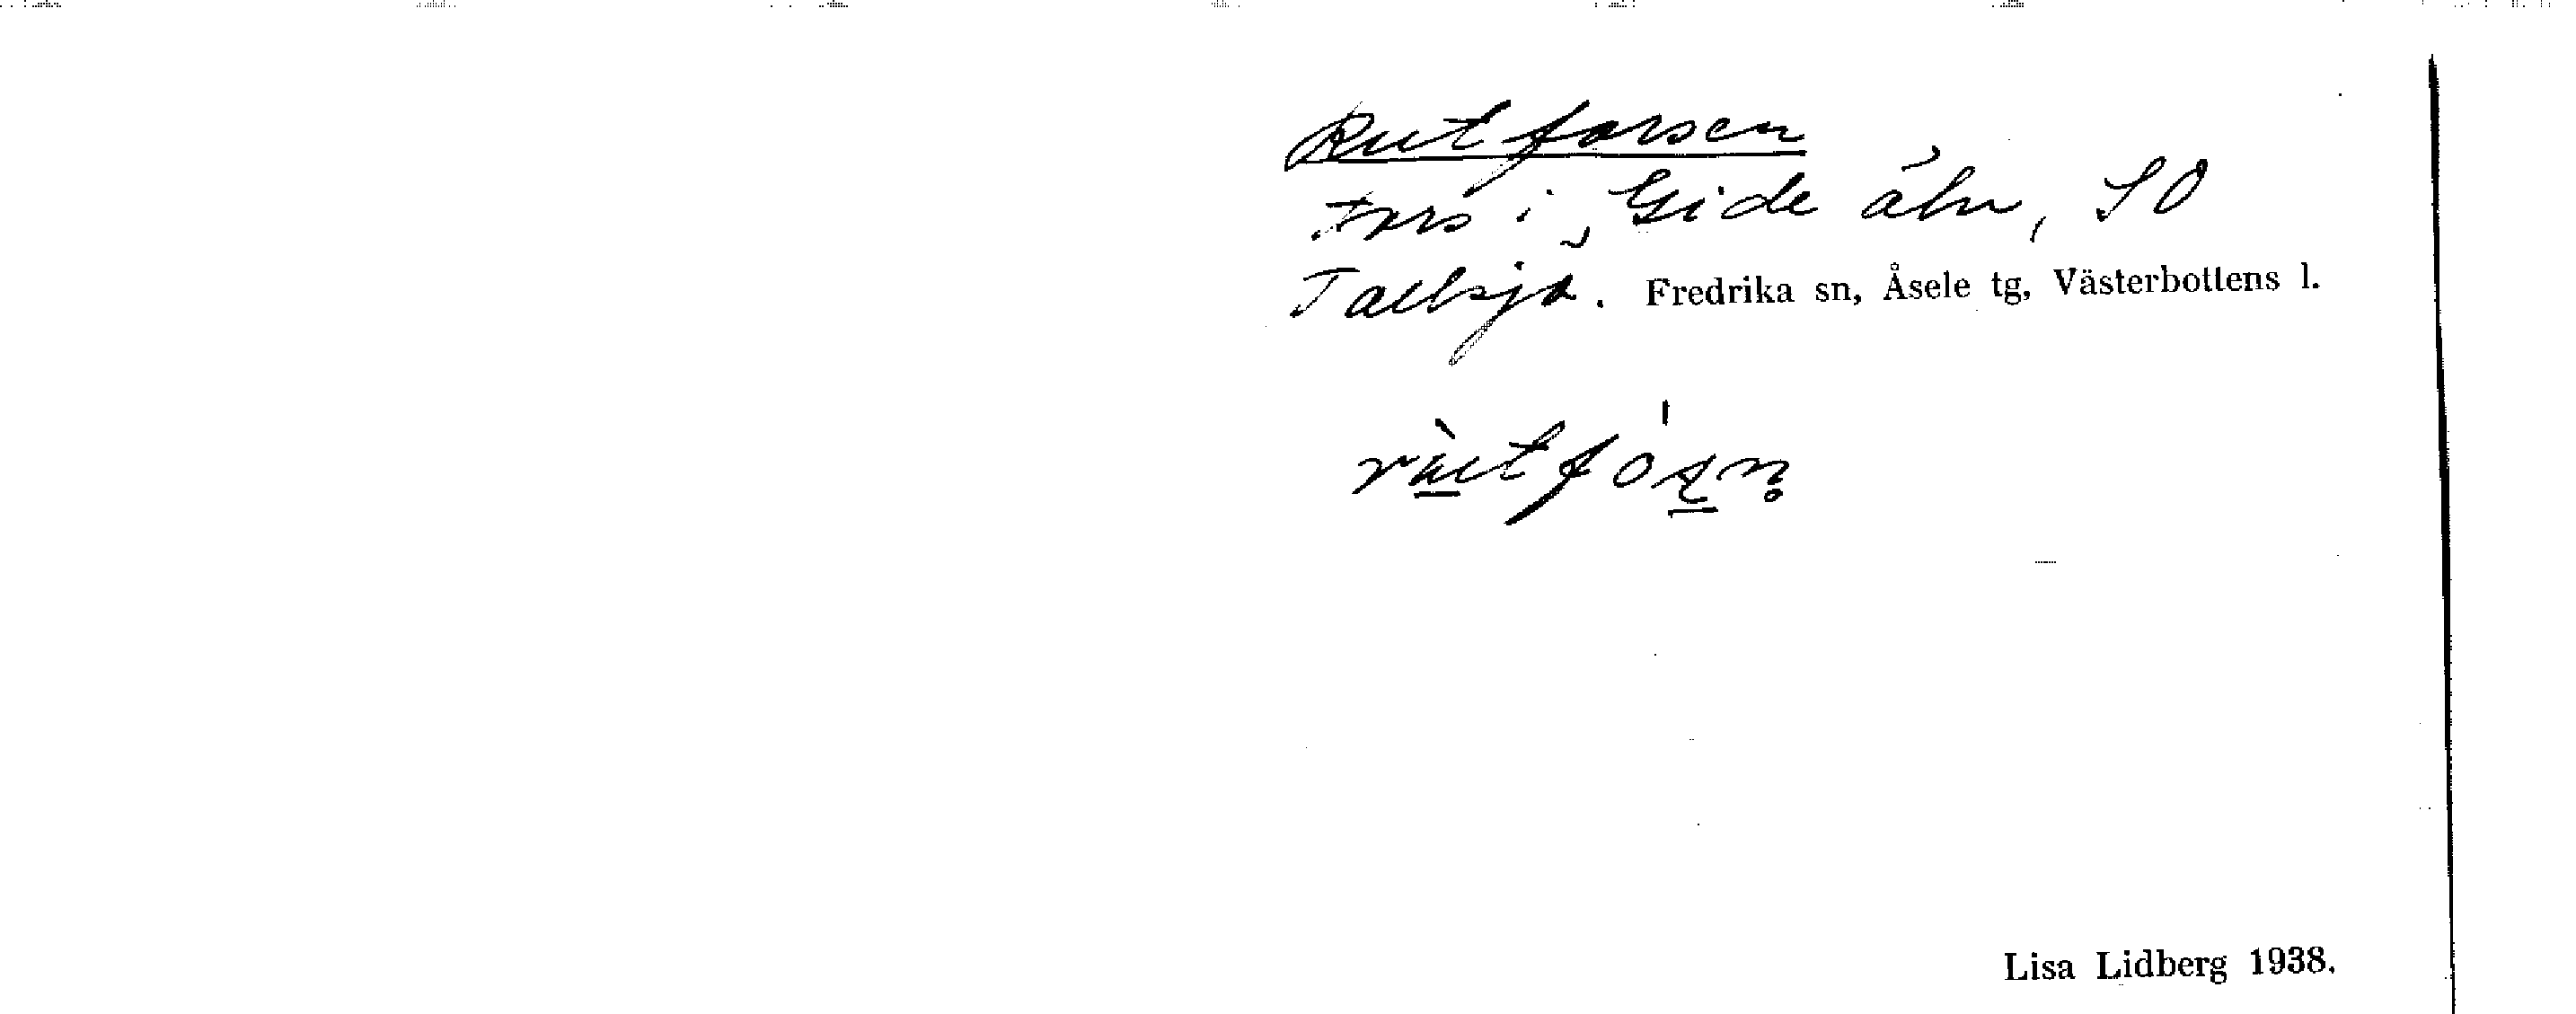 Rutforsen
Fors i Gide älv, SO
Tallsjö. Fredrika sn, Åsele tg, Västerbottens l.
Lisa Lidberg 1938.